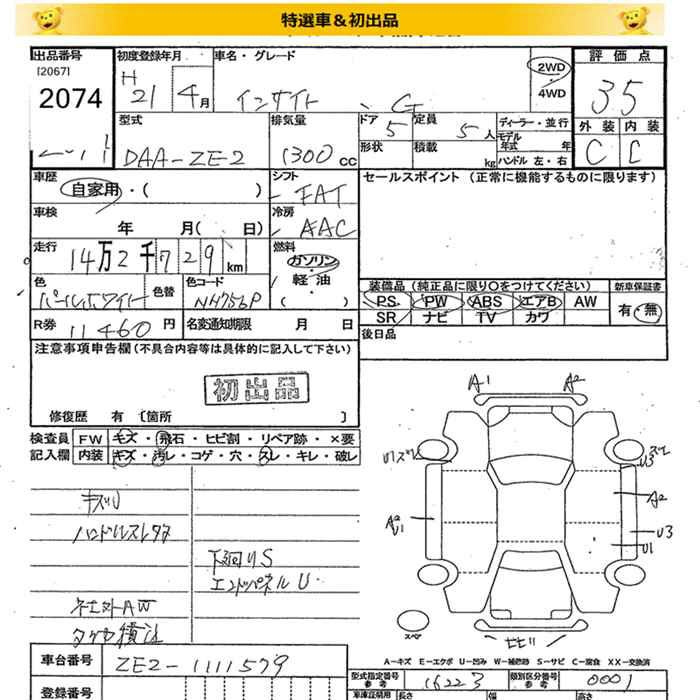 特選車＆初出品
出品番号
[2067]
2074
初度登録年月
H
21 4月
車名・グレード
インサイト G
2WD
・
4WD
評価点
3.5
外装 内装
C C
型式
DAA-ZE2
排気量
1300cc
ドア
5
形状
定員
5人
積載
kg
ディーラー・並行
モデル年式 年
ハンドル 左・右
車歴
自家用・( )
シフト
FAT
セールスポイント（正常に機能するものに限ります）
車検
年 月( 日)
冷房
AAC
走行
14万2千729km
燃料
ガソリン
・
軽油
・
( )
色
パールホワイト
色替
色コード
NH756P
装備品（純正品に限り○をつけてください）
PS PW ABS エアB AW
SR ナビ TV カワ
新車保証書
有・無
R券 11460円
名変通知期限 月 日
後日品
注意事項申告欄（不具合内容等は具体的に記入して下さい）
初出品
修復歴 有〔箇所 〕
検査員
記入欄
FW キズ・飛石・ヒビ割・リペア跡・×要
内装 キズ・汚レ・コゲ・穴・スレ・キレ・破レ
キズU
ハンドルスレタタ
下廻りS
エンドパネルU
社外AW
タイヤ積込
A1 A2
U3
A2
U1
A2
U3
U1
スペア
A－キズ E－エクボ U－凹み W－補修跡 S－サビ C－腐食 XX－交換済
車台番号
ZE2-1111579
型式指定番号
参考
16223
類別区分番号
参考
0001
登録番号
車庫証明用
参考
長さ
幅
高さ